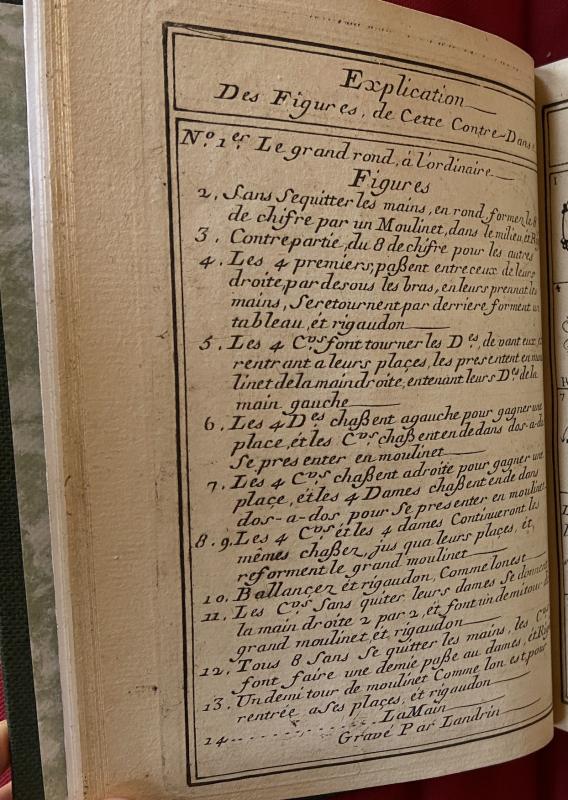 Explication
Des Figures, de Cette Contre-Danse
N.º 1.er Le grand rond, á l'ordinaire
Figures
2, Sans Sequitter les mains, en rond, formen le 8
de chifre par un Moulinet, dans le milieu, et
3. Contrepartie, du 8 de chifre pour les autres
4. Les 4 premiers, paßent entre ceux de leurs
droite, par desous les bras, en leurs prennat les
mains, Seretournent par derriere forment un
tableau, ét rigaudon
5, Les 4 C.vrs font tourner les D.es, de vant eux, et
rentrant a leurs plaçes, les presentent en mou
linet dela main droite, entenant leurs D.es de la
main gauche
6, Les 4 D.es chaßent agauche pour gagner une
place, et les C.vrs chaßent en dedans dos-a-dos
Se pres enter en moulinet
7, Les 4 C.vrs chaßent adroite pour gagner une
place, ét les 4 Dames chaßent en de dans
dos-a-dos pour Se presenter en moulinet
8, 9. Les 4 C.vrs ét les 4 dames Continueront les
mêmes chaßez, jus qua leurs plaçes, ét,
reforment le grand moulinet
10, Ballançez ét rigaudon, Comme lonest
11, Les C.vrs Sans quiter leurs dames Se donnent
la main droite 2 par 2, ét font un demi tour de
grand moulinet, ét rigaudon
12, Tous 8 Sans Se quitter les mains, les C.vrs
font faire une demie paße au dames, ét Rig
13. Un demi tour de moulinet Comme lon est, pour
rentrée a Ses plaçes, ét rigaudon
14 LaMain
Gravé Par Landrin